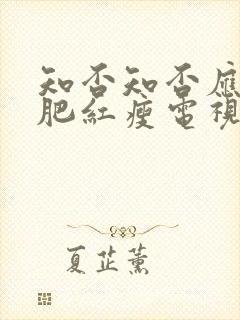 知否知否應
肥紅瘦電視
夏芷薰